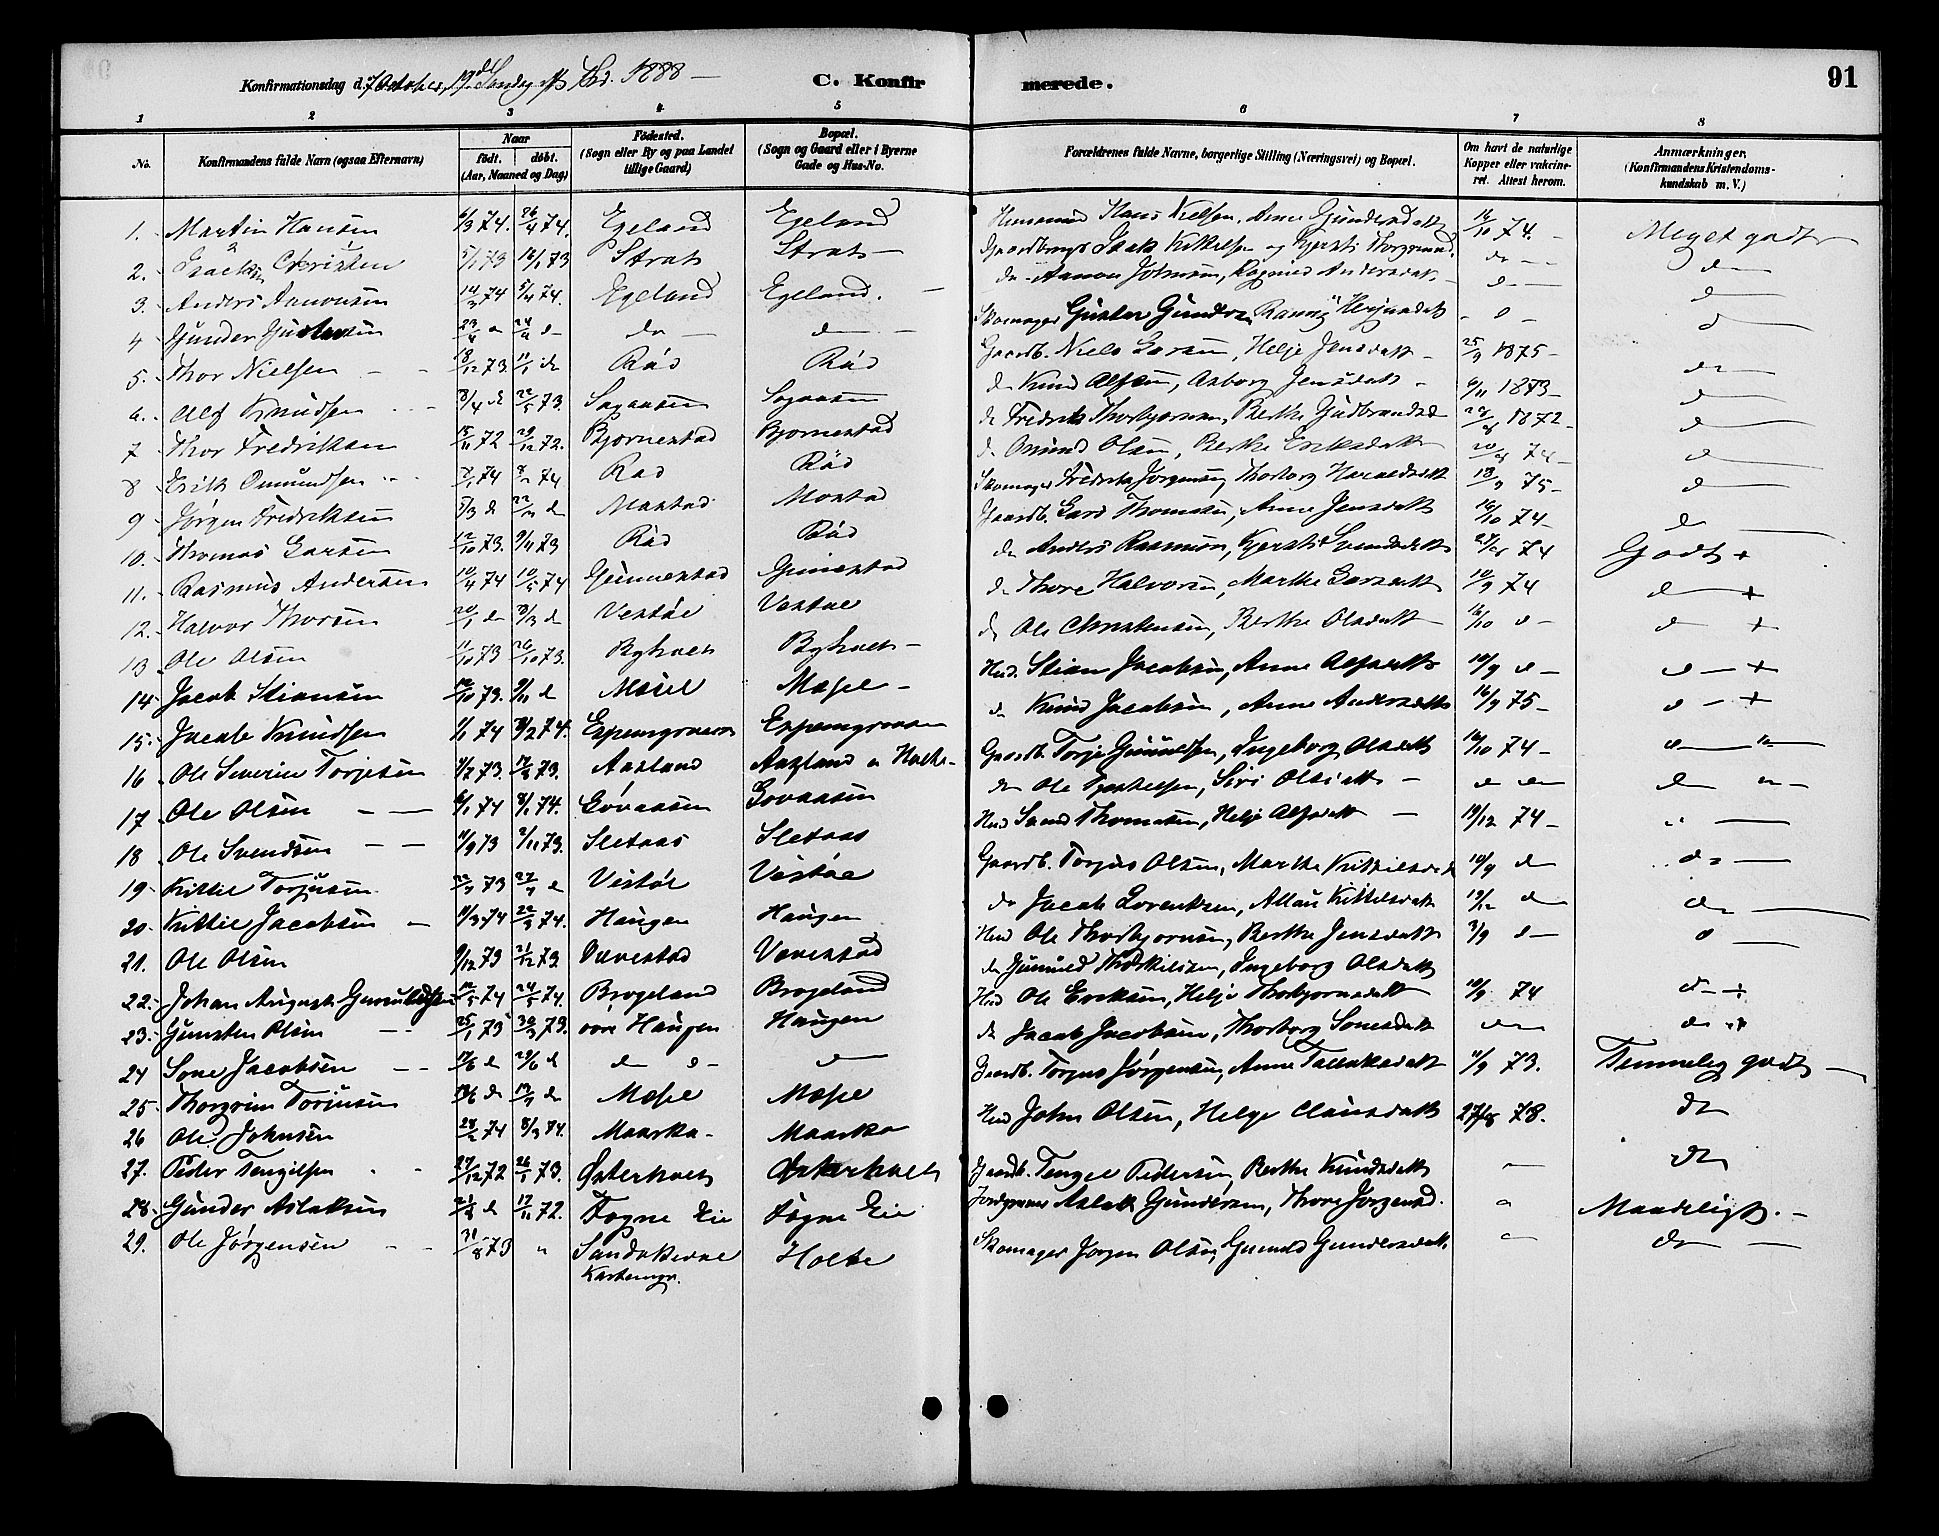 Konfirmationsdag d. 7 October, 19de Søndag eft. Trd. 1888 —
C. Konfirmerede.
91
1 2 3 4 5 6 7 8
No. Konfirmandens fulde Navn (ogsaa Efternavn) Naar født. døbt. (Aar, Maaned og Dag) Födested. (Sogn eller By og paa Landet tillige Gaard) Bopæl. (Sogn og Gaard eller i Byerne Gade og Hus-No. Forældrenes fulde Navne, borgerlige Stilling (Næringsvei) og Bopæl. Om havt de naturlige Kopper eller vakcineret. Attest herom. Anmærkninger. (Konfirmandens Kristendomskundskab m. V.)
1. Martin Hansen 6/3 74. 26/4 74. Egeland Egeland Huusmand Hans Nielsen, Anne Gundersdatt 16/10 74. Meget godt
2. Christen Strat Strat Gaardbruger Isak Kittelsen og Kjersti d
3. Anders Aanonsen 14/2 74 5/4 74. Egeland Egeland. do Aanon Johnsen, Ragnild Andersdat. d d
4 Gunder Gustavsen 23/4 d do d Skomager Gustav Gunders. d d
5. Thor Nielsen 18/12 73. 11/1 Rød Rød Gaardb. Niels Larsen, Helje Jensdatt 25/9 1875 d
6. Alf Knudsen 3/4 d 22/5 73. Sogaasen Sogaasen d Knud Alfsen, Asborg Jensdatt 6/11 1873 d
7 Thor Fredriksen 15/11 72 29/12 72. Bjornestad Bjornestad d Fredrik Thorbjornsen, Berthe Gudbrandsd 1872 d
8 Erik Omundsen 74 74 Rød Rød d Omund Olsen, Berthe Eriksdatt 74 d
9 Jørgen Fredriksen 3/3 d d Mostad Mostad Skomager Fredrik Jørgensen, Thorborg Haraldsdatt 75 d
10. Thomas Larsen 12/10 73. 9/11 73 Rød Rød Gaardb. Lars Thomsen, Anne Jensdatt 16/10 74 d
11. Rasmus Andersen 10/4 74 10/5 74 Gunnestad Gunnestad do Anders Rasmusen, Kjersti Svendsdatt 74 Godt +
12. Halvor Thorsen 20/1 d 8/3 d Vestøl Vestøl d Thore Halvorsen, Marthe Larsdatt 10/9 74 d +
13 Ole Olsen 11/10 73 26/10 73. Byholt Byholt d Ole Christensen, Berthe Olsdatt 16/10 d d +
14 Jacob Stiansen 12/10 73. 9/11 d Mæsel Mæsel Hud. Stian Jacobsen, Anne Alfsdatt 10/9 d d +
15. Jacob Knudsen 1/1 74 8/2 74. Espemgroven d Knud Jacobsen, Anne Andersdatt 16/9 75 d +
16 Ole Severin Torjesen 73. 73. Aasland Aasland Gaardb. Torje Gunuldsen, Ingeborg Olsdatt 16/10 74 d
17. Ole Olsen 6/1 74 8/1 74. Løvaasen Lovaasen do Ole Kjetelsen, Siri Olsdatt d d
18 Ole Svendsen 11/9 73 2/11 73. Sletaas Sletaas Hud Svend Thomesen, Helje Alfsdatt 19/12 74
19. Kittil Torjusen 73 27/7 d Vestøl Vestøl Gaardb. Torjus Olsen, Marthe Kittilsdatt 10/9 d do
20. Kittil Jacobsen 11/3 74 22/3 74. Haugen Haugen do Jacob Lorentzen, Kittelsdatt 19/12 d do
21. Ole Olsen 9/12 73 21/12 73. Vævestad Vævestad Hud Ole Thorbjornsen, Berthe Jensdatt 3/9 d d
22. Johan August Gunuldsen 12/5 74 24/5 74. Brogeland Brogeland do Gunuld Thorkilsen, Ingeborg Olsdatt
23. Gunsten Olsen 25/1 73 73. øvre Haugen Haugen Hud Ole Eriksen, Helje Thorbjornsdatt 10/9 74 d +
24 Sone Jacobsen d d d d d Jacob Jacobsen, Thorborg Sonesdatt do d
25. Thorgrim Torjusen d d Mæsel Mæsel Gaardb. Torjus Jørgensen, Anne Tallaksdatt 11/9 73. Temmelig godt
26 Ole Johnsen 74 74. Maarka Maarka Hud John Olsen, Helge Clausdatt 78. do
27. Peder Tengelsen 27/12 72 26/1 73. Østerholt Østerholt Gaardb. Tengel Pedersen, Berthe Knudsdatt do
28. Gunder Aslaksen d 17/11 72. Fogne Eie Fogne Eie Aslak Gundersen, Thore Jorgensd. Maadeligt.
29. Ole Jørgensen 31/8 73 Sandakerne Holte Skomager Jorgen Olsen, Gunuld Gundersdatt. do